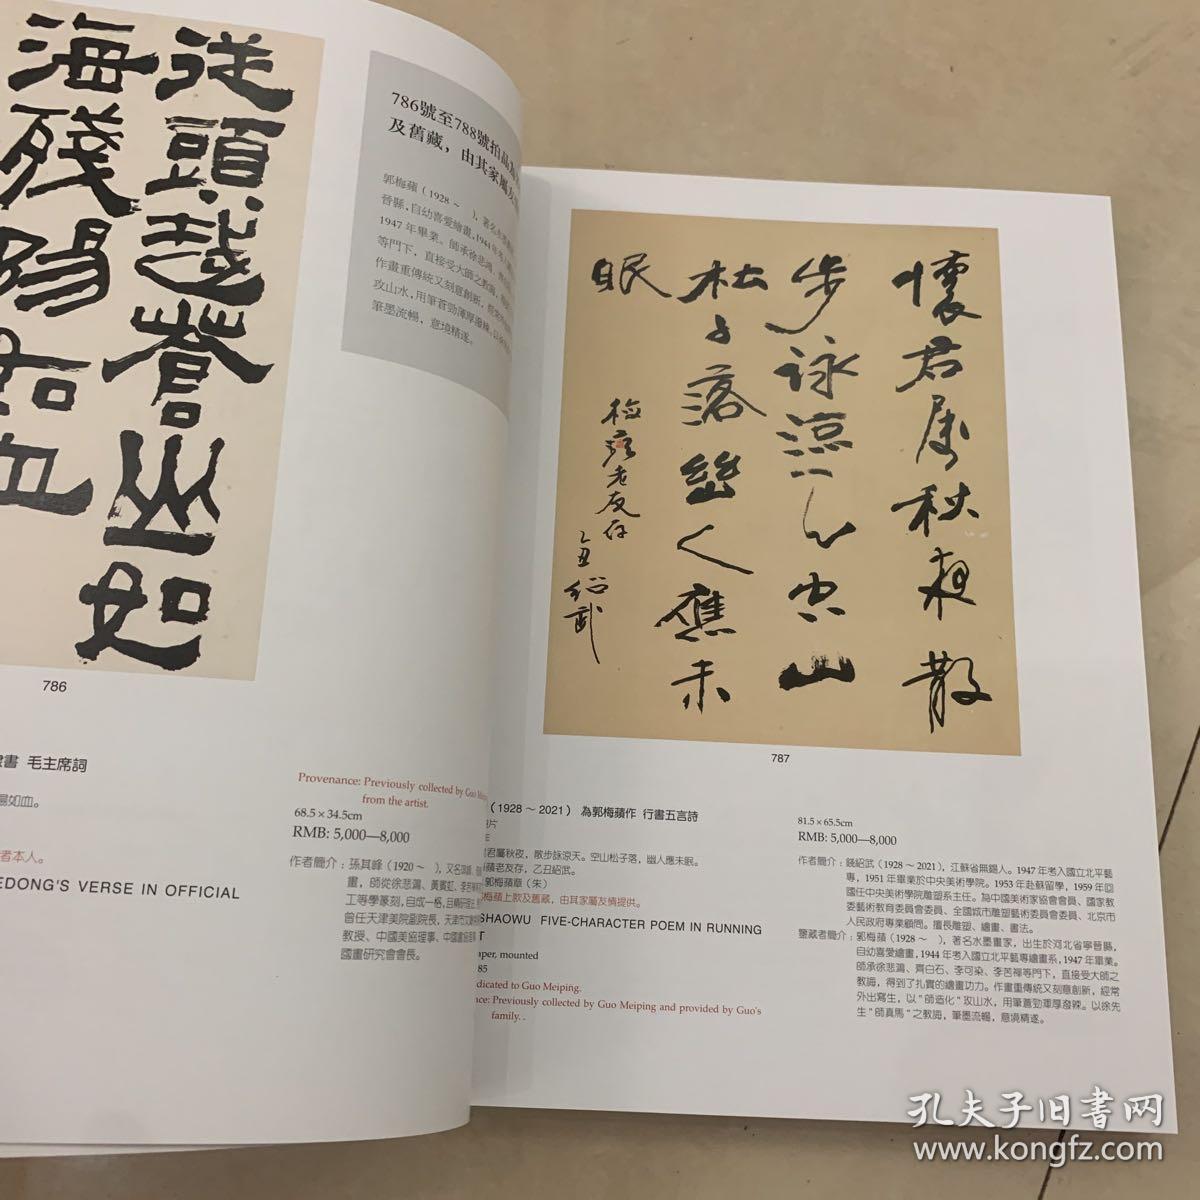 從頭越蒼山如
海殘陽如血
786
786號至788號拍品為
及舊藏，由其家屬友
郭梅蘋（1928～　），著名水墨畫
晉縣，自幼喜愛繪畫，1944年考入國
1947年畢業。師承徐悲鴻、
等門下，直接受大師之教誨，
作畫重傳統又刻意創新，經常外
攻山水，用筆蒼勁渾厚潑辣。以徐
筆墨流暢，意境精遂。
書 毛主席詞
陽如血。
者本人。
EDONG'S VERSE IN OFFICIAL
Provenance: Previously collected by Guo Meiping
from the artist.
68.5×34.5cm
RMB: 5,000—8,000
作者簡介：孫其峰（1920～　），又名琪峰，
畫，師從徐悲鴻、黃賓虹、李苦禪
工等學篆刻，自成一格，目錄研理出
曾任天津美院副院長，天津市文史
教授、中國美協理事、中國書協
國畫研究會會長。
懷君屬秋夜散
步詠涼天空山
松子落幽人應未
眠
梅蘋老友存
乙丑紹武
787
（1928～2021） 為郭梅蘋作 行書五言詩
片
年
君屬秋夜，散步詠涼天。空山松子落，幽人應未眠。
蘋老友存，乙丑紹武。
郭梅蘋章（朱）
梅蘋上款及舊藏，由其家屬友情提供。
SHAOWU FIVE-CHARACTER POEM IN RUNNING
T
aper, mounted
85
dicated to Guo Meiping.
nce: Previously collected by Guo Meiping and provided by Guo's
family..
81.5×65.5cm
RMB: 5,000—8,000
作者簡介：錢紹武（1928～2021），江蘇省無錫人。1947年考入國立北平藝
專，1951年畢業於中央美術學院。1953年赴蘇留學，1959年回
國任中央美術學院雕塑系主任。為中國美術家協會會員、國家教
委藝術教育委員會委員、全國城市雕塑藝術委員會委員、北京市
人民政府專業顧問。擅長雕塑、繪畫、書法。
鑒藏者簡介：郭梅蘋（1928～　），著名水墨畫家，出生於河北省寧晉縣，
自幼喜愛繪畫，1944年考入國立北平藝專繪畫系，1947年畢業。
師承徐悲鴻、齊白石、李可染、李苦禪等門下，直接受大師之
教誨，得到了扎實的繪畫功力。作畫重傳統又刻意創新，經常
外出寫生，以“師造化”攻山水，用筆蒼勁渾厚潑辣。以徐先
生“師真馬”之教誨，筆墨流暢，意境精遂。
孔夫子旧书网
www.kongfz.com